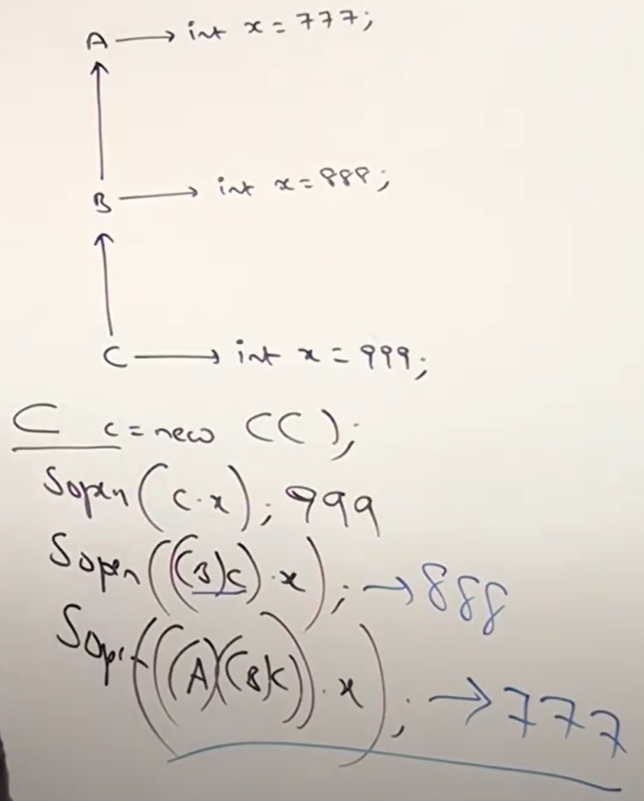 A → int x = 777;
B → int x = 888;
C → int x = 999;
C c = new C();
Sopln(c.x); 999
Sopln(((B)c).x); → 888
Sopln(((A)(B)c)).x); → 777